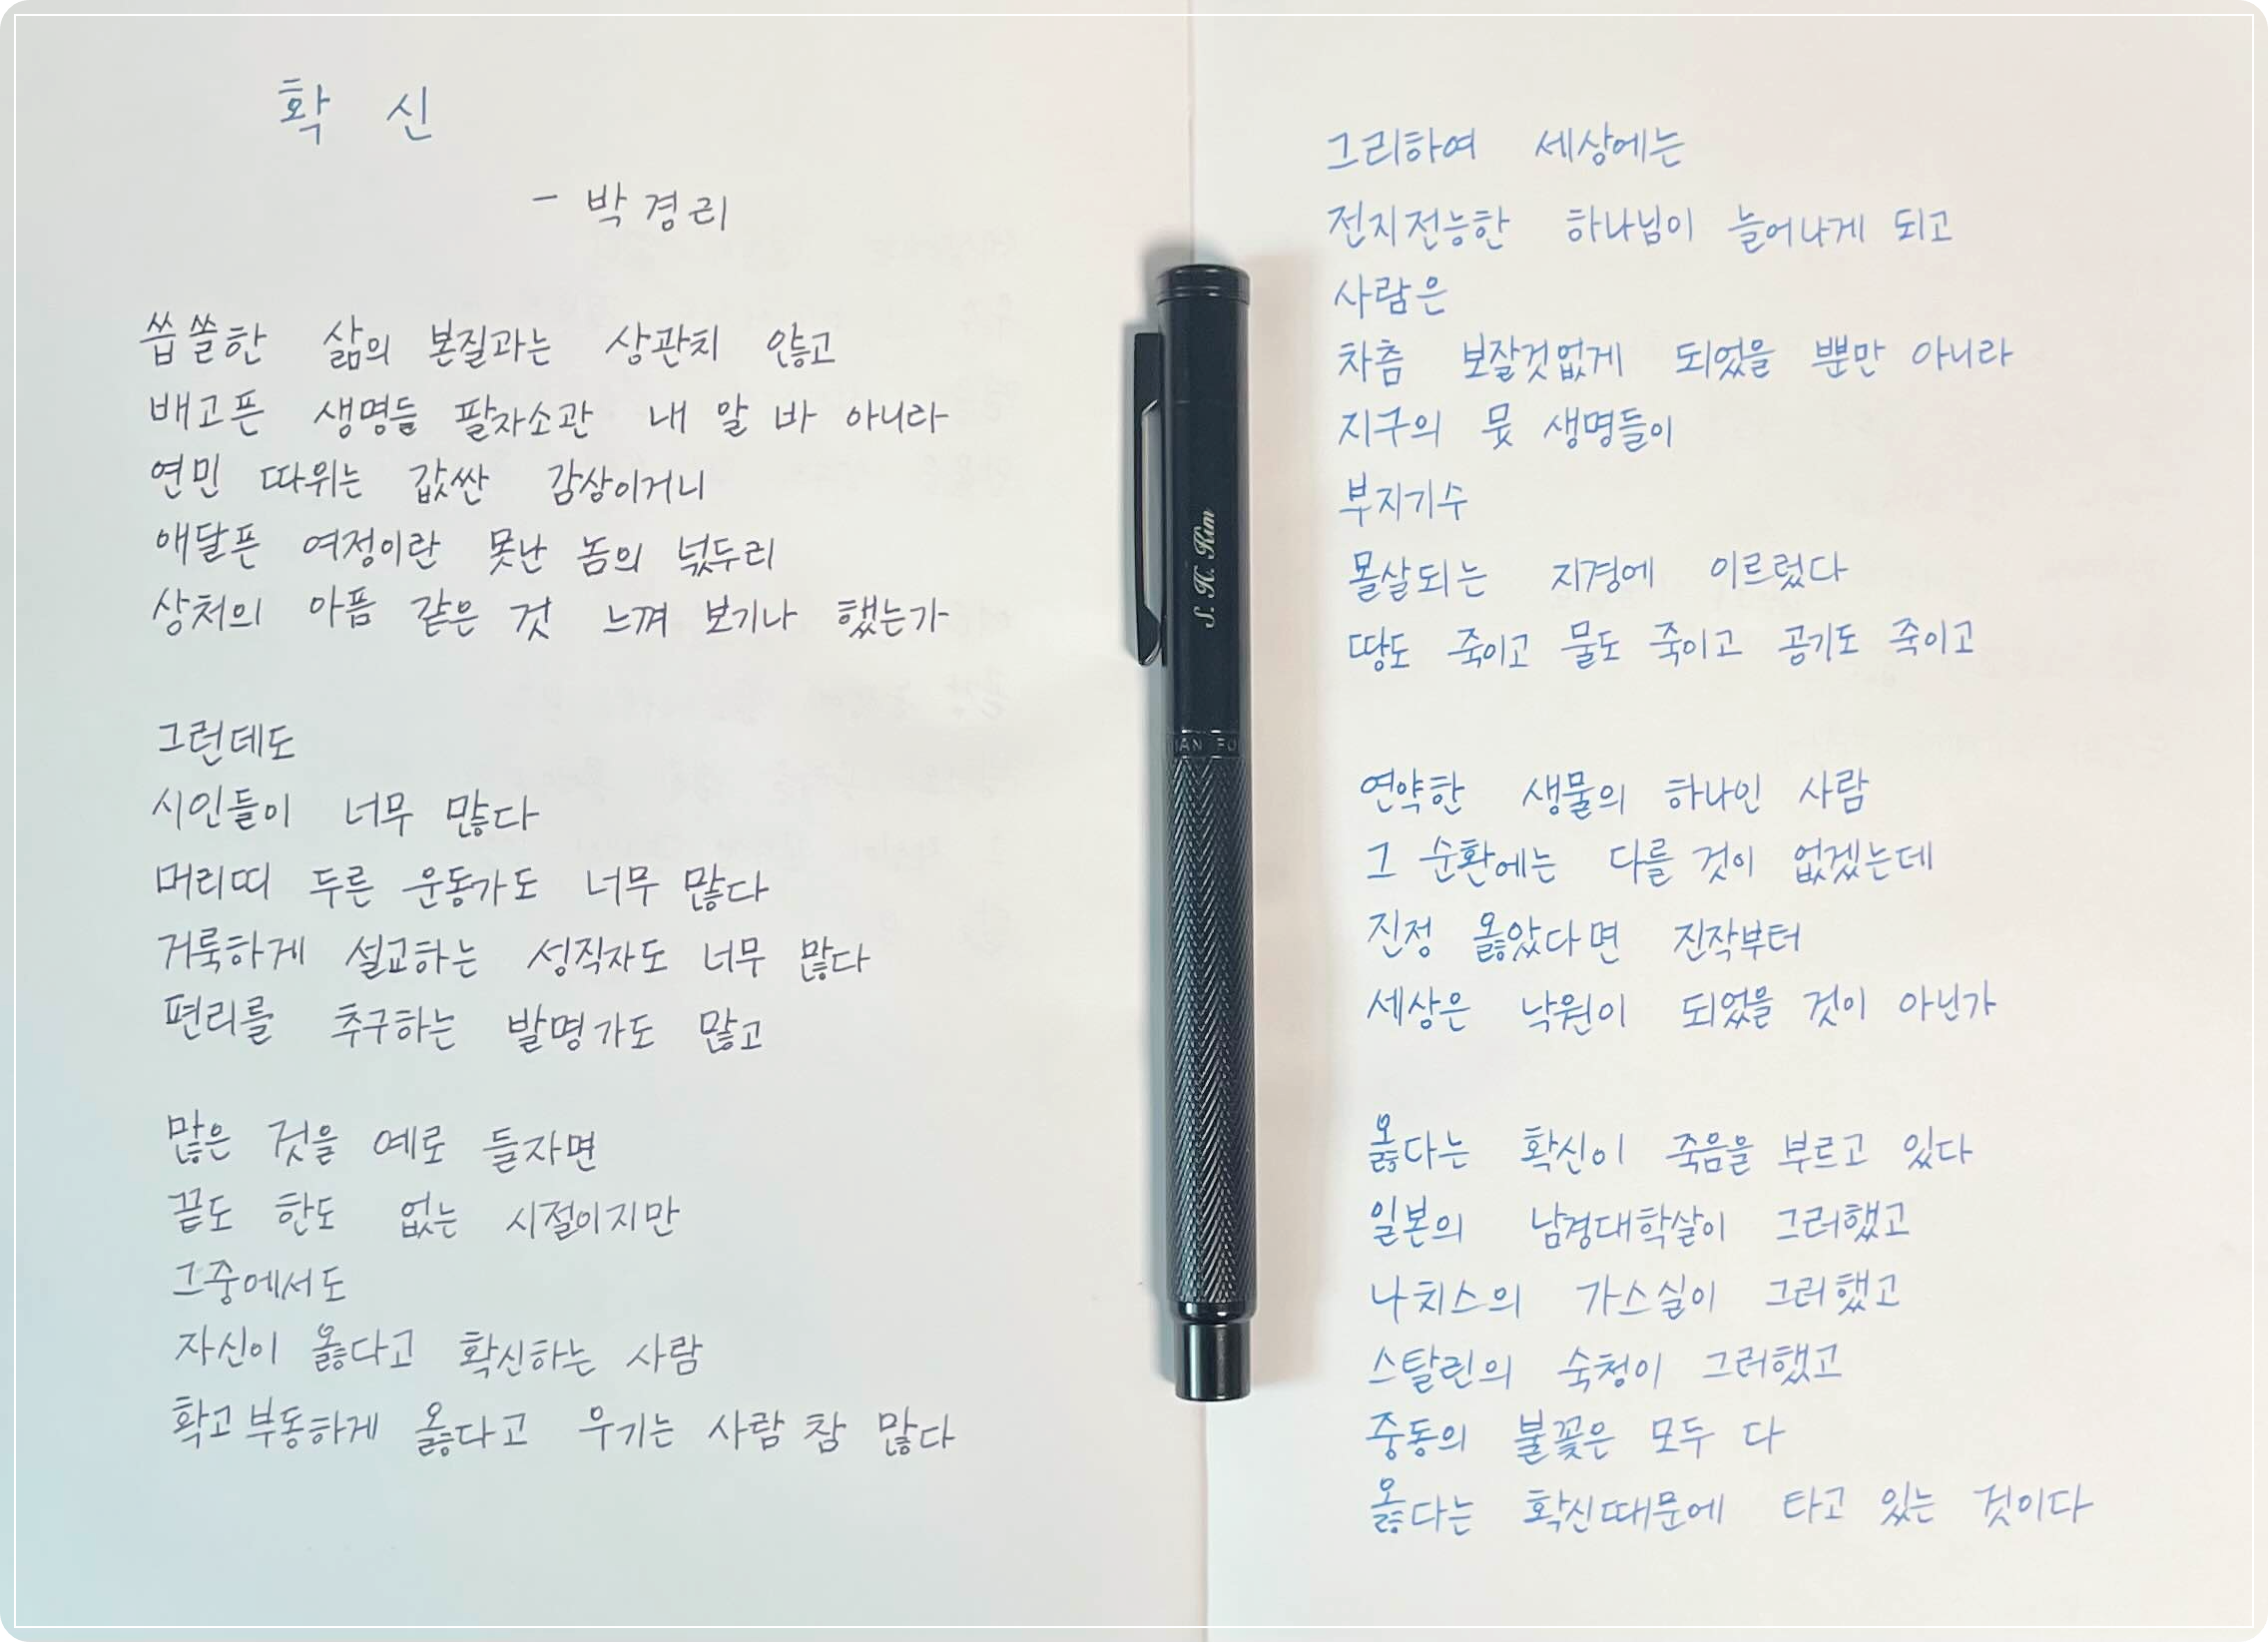 확 신
- 박경리
씁쓸한 삶의 본질과는 상관치 않고
배고픈 생명들 팔자소관 내 알 바 아니라
연민 따위는 값싼 감상이거니
애달픈 여정이란 못난 놈의 넋두리
상처의 아픔 같은 것 느껴 보기나 했는가
그런데도
시인들이 너무 많다
머리띠 두른 운동가도 너무 많다
거룩하게 설교하는 성직자도 너무 많다
편리를 추구하는 발명가도 많고
많은 것을 예로 들자면
끝도 한도 없는 시절이지만
그중에서도
자신이 옳다고 확신하는 사람
확고부동하게 옳다고 우기는 사람 참 많다
S. H. Kim
그리하여 세상에는
전지전능한 하나님이 늘어나게 되고
사람은
차츰 보잘것없게 되었을 뿐만 아니라
지구의 뭇 생명들이
부지기수
몰살되는 지경에 이르렀다
땅도 죽이고 물도 죽이고 공기도 죽이고
연약한 생물의 하나인 사람
그 순환에는 다를 것이 없겠는데
진정 옳았다면 진작부터
세상은 낙원이 되었을 것이 아닌가
옳다는 확신이 죽음을 부르고 있다
일본의 남경대학살이 그러했고
나치스의 가스실이 그러했고
스탈린의 숙청이 그러했고
중동의 불꽃은 모두 다
옳다는 확신때문에 타고 있는 것이다